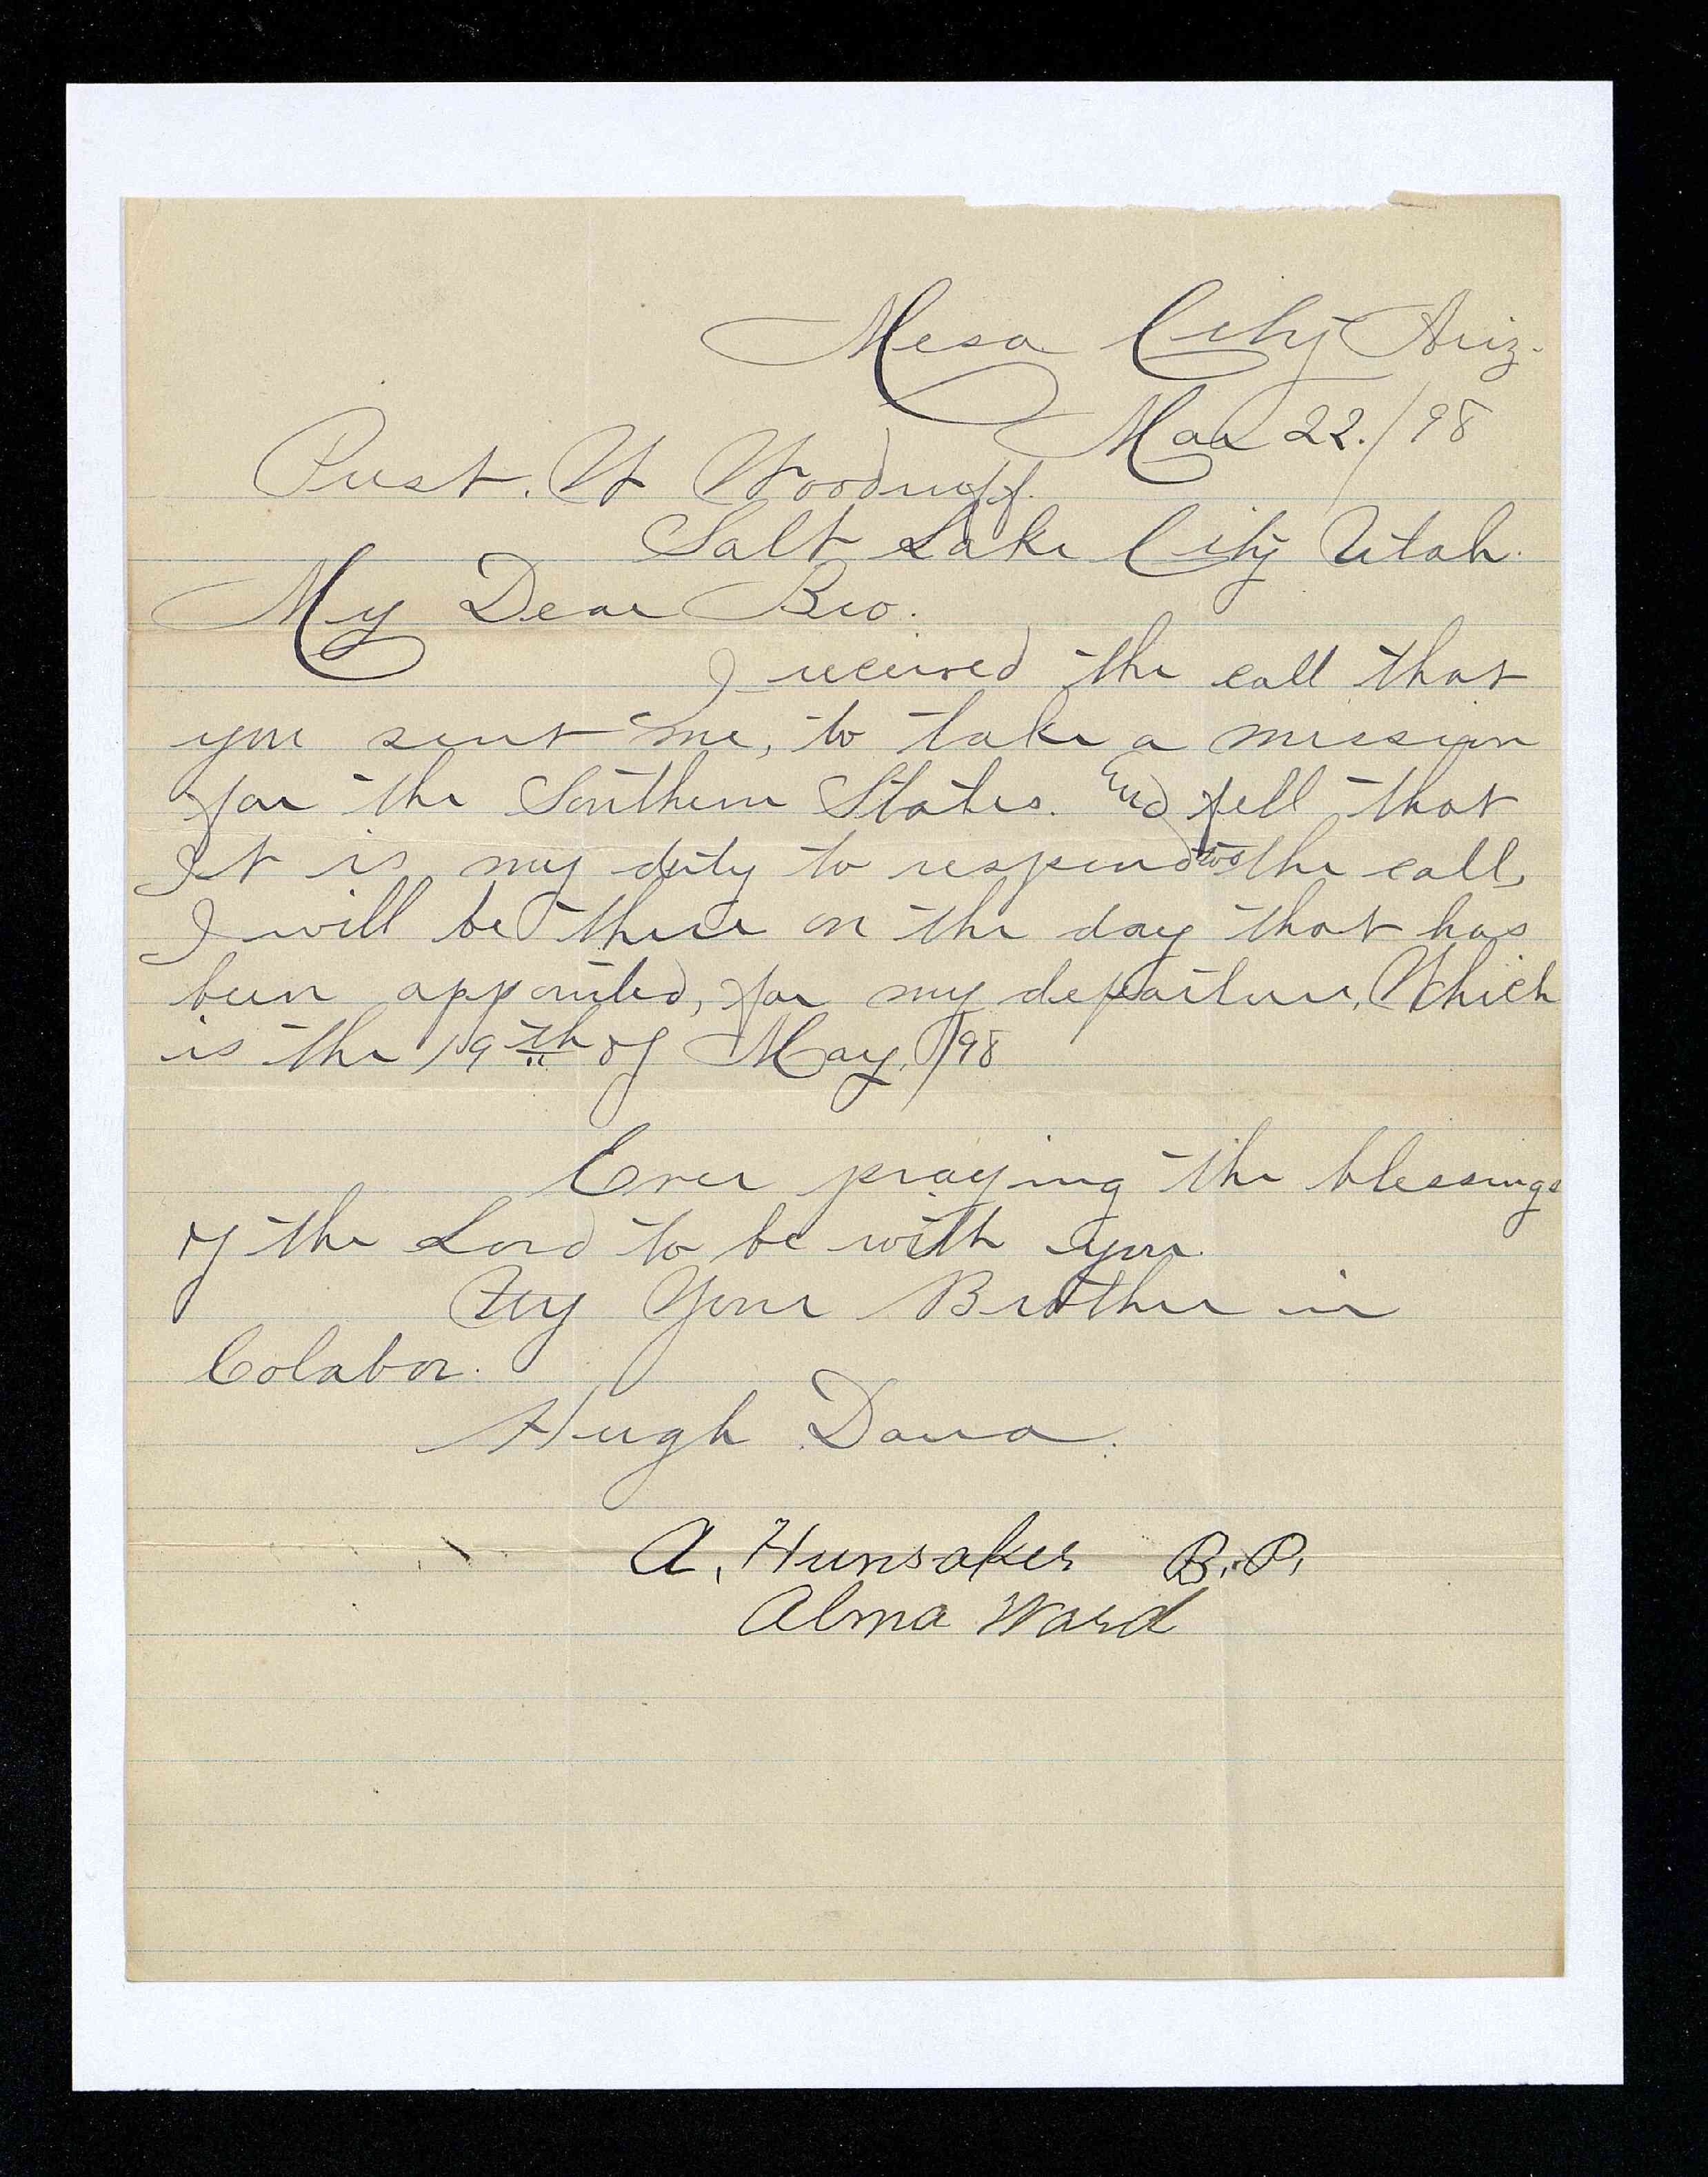 Mesa City Ariz.
Mar 22./98
Prest. W Woodruff.
Salt Lake City Utah.
My Dear Bro.
I received the call that
you sent me, to take a mission
for the Southern States. and fell that
It is my duty to respond to the call,
I will be there on the day that has
been appointed, for my departure, Which
is the 19th of May, /98
Ever praying the blessings
of the Lord to be with you.
Your Brother in
Colabor.
Hugh Dana.
A. Hunsaker B.P.
Alma Ward